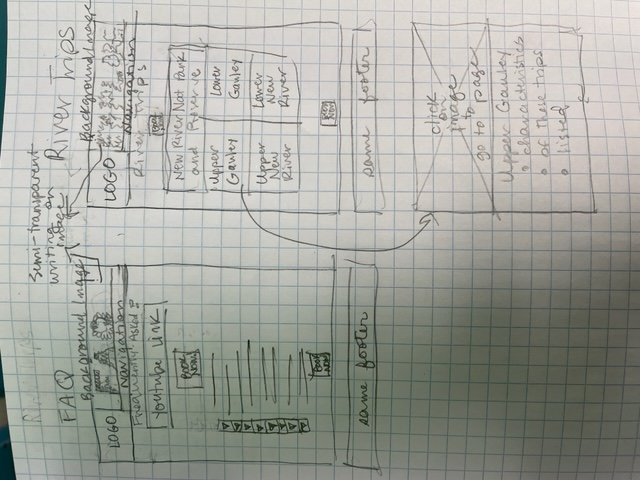 Semi-transparent
writing on
image
FAQ
Background Image
LOGO
Navigation
Frequently Asked ?
Youtube Link
BOOK
NOW
BOOK
NOW
same footer
River Trips
Background Image
LOGO
Navigation
River Trips
BOOK
NOW
New River Nat Park
and Preserve
Upper
Gauley
Lower
Gauley
Upper
New
River
Lower
New
River
BOOK
NOW
same footer
click
on
image
to
go to page
Upper Gauley
• characteristics
• of these trips
• listed